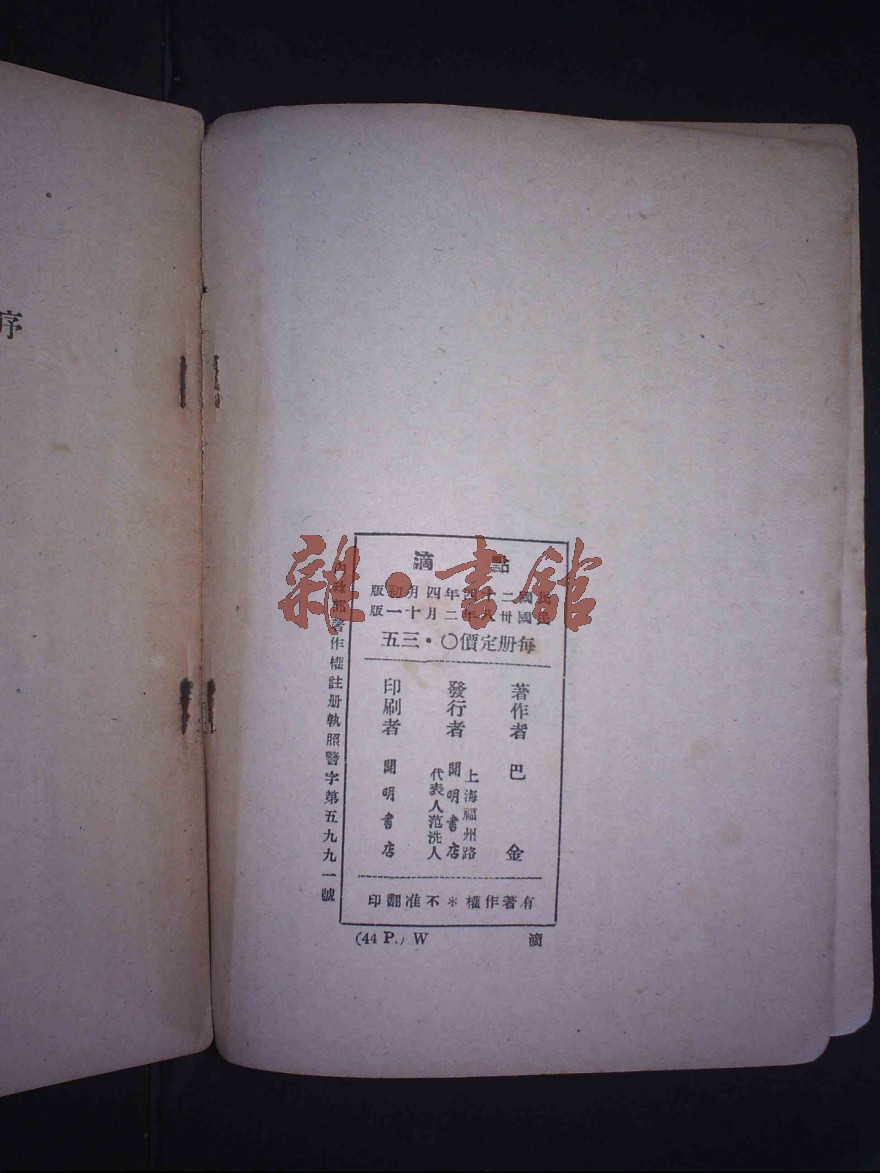 序
點滴
民國二十四年四月初版
民國卅八年二月十一版
每册定價〇・三五
著作者 巴金
發行者 開明書店
上海福州路
代表人范洗人
印刷者 開明書店
有著作權＊不准翻印
內政部著作權註册執照警字第五九九一號
(44 P.) W
滴
雜・書館